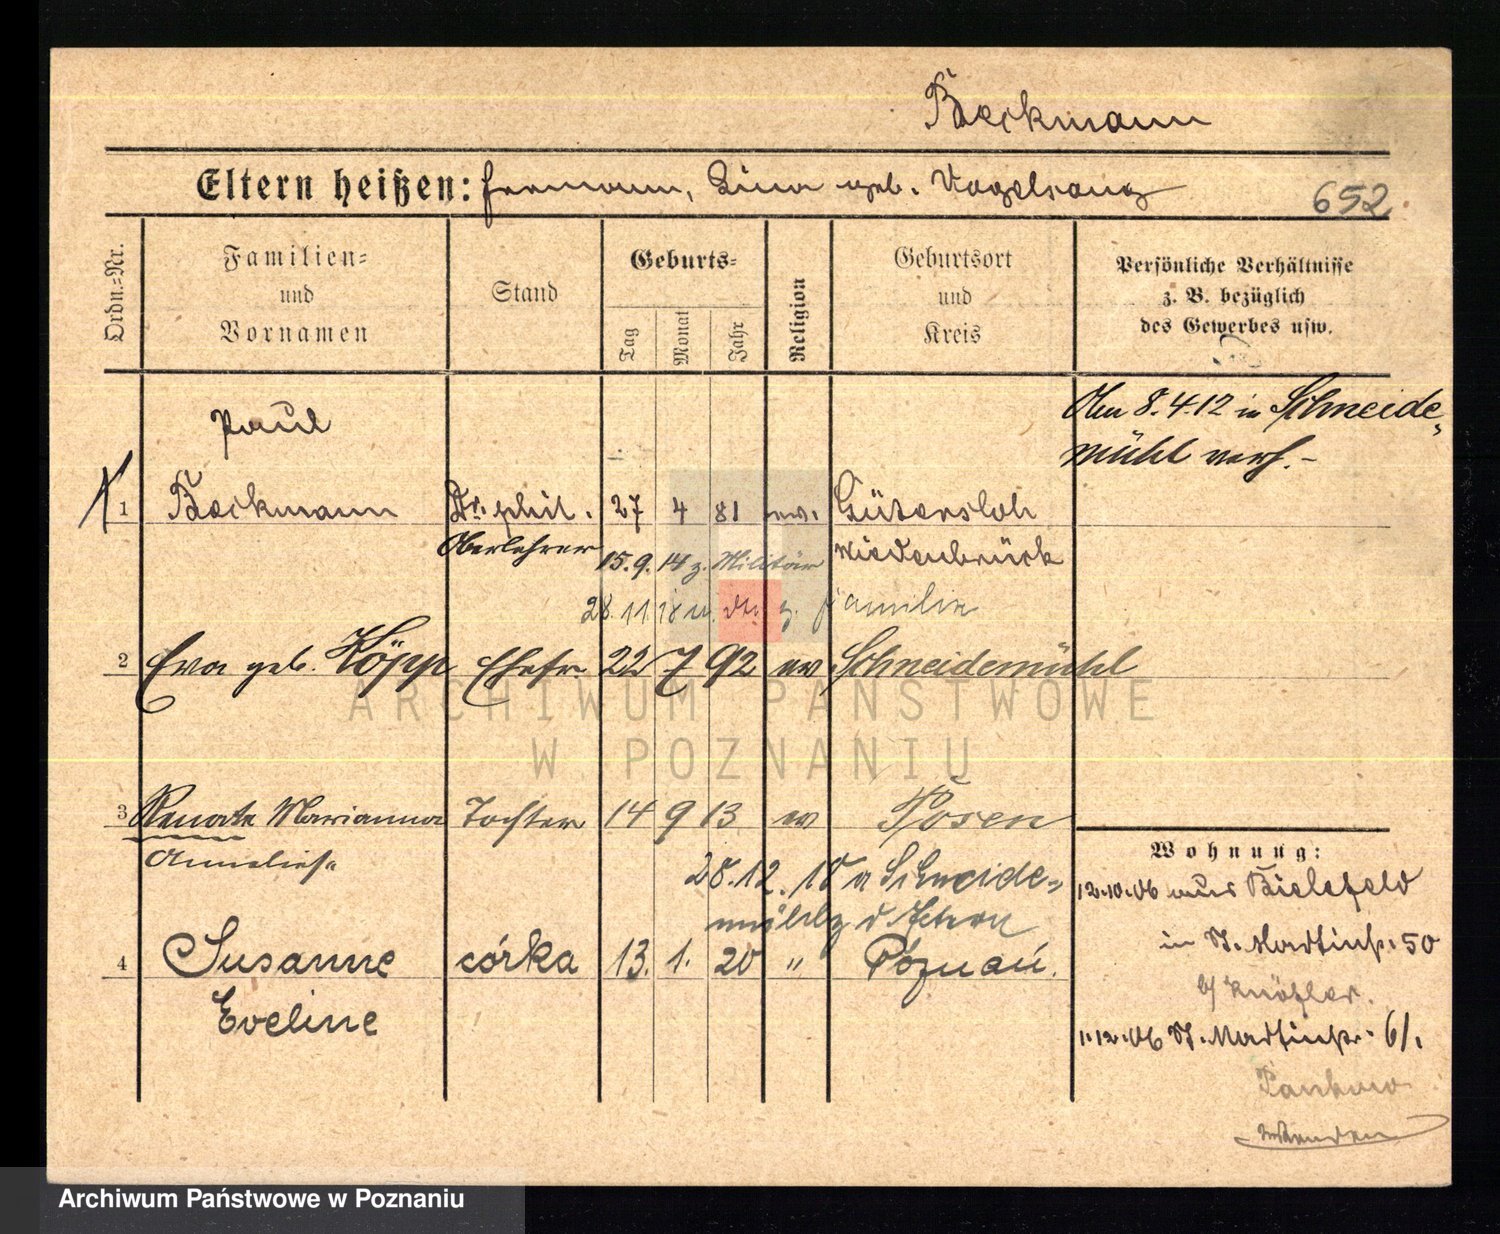 Beckmann
Eltern heißen: Hermann, Lina geb. Vogelsang
652
Ordn.=Nr.
Familien=
und
Vornamen
Stand
Geburts=
Tag
Monat
Jahr
Religion
Geburtsort
und
Kreis
Persönliche Verhältnisse
z. B. bezüglich
des Gewerbes usw.
Am 8.4.12 in Schneide=
mühl verh. –
Paul
1 Beckmann Dr. phil. 27 4 81 ev. Gütersloh
Oberlehrer Wiedenbrück
15.9.14 z. Militär
28.11.18 z. Familie
2 Eva geb. Köpp Ehefr. 22 7 92 ev Schneidemühl
3 Renate Marianna Tochter 14 9 13 ev Posen
Anneliese
28.12.18 a Schneide=
mühl
4 Susanne córka 13. 1. 20 " Poznań.
Eveline
Wohnung:
12.10.06 aus Bielefeld
in St. Martinstr. 50
b/ Knözler.
1.12.06 St. Martinstr. 61.
Pankow
ARCHIWUM PAŃSTWOWE
W POZNANIU
Archiwum Państwowe w Poznaniu